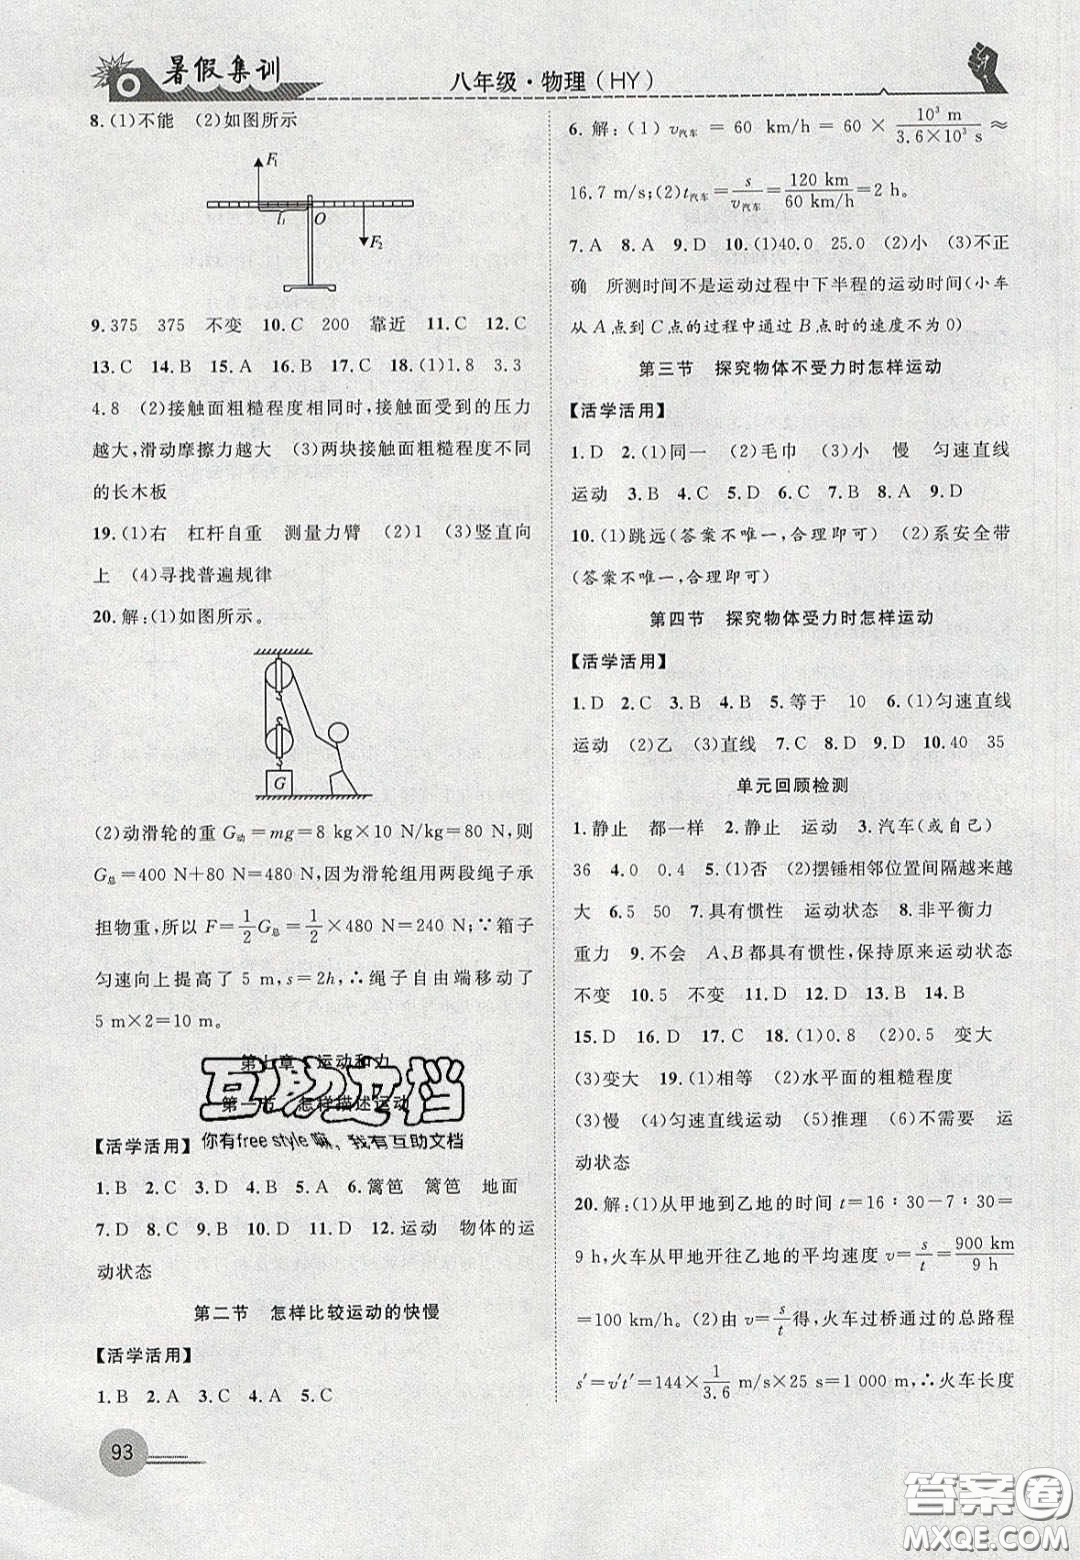 暑假集训
八年级·物理(HY)
8.(1)不能 (2)如图所示
F₁
l₁
O
F₂
9.375 375 不变 10.C 200 靠近 11.C 12.C
13.C 14.B 15.A 16.B 17.C 18.(1)1.8 3.3
4.8 (2)接触面粗糙程度相同时,接触面受到的压力
越大,滑动摩擦力越大 (3)两块接触面粗糙程度不同
的长木板
19.(1)右 杠杆自重 测量力臂 (2)1 (3)竖直向
上 (4)寻找普遍规律
20.解:(1)如图所示。
G
(2)动滑轮的重G动=mg=8 kg×10 N/kg=80 N,则
G总=400 N+80 N=480 N,因为滑轮组用两段绳子承
担物重,所以 F=1/2G总=1/2×480 N=240 N;∵箱子
匀速向上提高了 5 m,s=2h,∴绳子自由端移动了
5 m×2=10 m。
第七章 运动和力
第一节 怎样描述运动
互助文档
你有free style嘛、我有互助文档
【活学活用】
1.B 2.C 3.D 4.B 5.A 6.篱笆 篱笆 地面
7.D 8.C 9.B 10.B 11.D 12.运动 物体的运
动状态
第二节 怎样比较运动的快慢
【活学活用】
1.B 2.A 3.C 4.A 5.C
93
6.解:(1)v汽车=60 km/h=60×10³ m/3.6×10³ s≈
16.7 m/s;(2)t汽车=s/v汽车=120 km/60 km/h=2 h。
7.A 8.A 9.D 10.(1)40.0 25.0 (2)小 (3)不正
确 所测时间不是运动过程中下半程的运动时间(小车
从A点到C点的过程中通过B点时的速度不为0)
第三节 探究物体不受力时怎样运动
【活学活用】
1.D 2.(1)同一 (2)毛巾 (3)小 慢 匀速直线
运动 3.B 4.C 5.D 6.D 7.C 8.A 9.D
10.(1)跳远(答案不唯一,合理即可) (2)系安全带
(答案不唯一,合理即可)
第四节 探究物体受力时怎样运动
【活学活用】
1.D 2.C 3.B 4.B 5.等于 10 6.(1)匀速直线
运动 (2)乙 (3)直线 7.C 8.D 9.D 10.40 35
单元回顾检测
1.静止 都一样 2.静止 运动 3.汽车(或自己)
36 4.0 0.4 5.(1)否 (2)摆锤相邻位置间隔越来越
大 6.5 50 7.具有惯性 运动状态 8.非平衡力
重力 9.不会 A、B都具有惯性,保持原来运动状态
不变 10.5 不变 11.D 12.D 13.B 14.B
15.D 16.D 17.C 18.(1)0.8 (2)0.5 变大
(3)变大 19.(1)相等 (2)水平面的粗糙程度
(3)慢 (4)匀速直线运动 (5)推理 (6)不需要 运
动状态
20.解:(1)从甲地到乙地的时间 t=16∶30-7∶30=
9 h,火车从甲地开往乙地的平均速度 v=s/t=900 km/9 h
=100 km/h;(2)由 v=s/t得,火车过桥通过的总路程
s′=v′t′=144×1/3.6 m/s×25 s=1 000 m,∴火车长度
答案圈
MXQE.COM